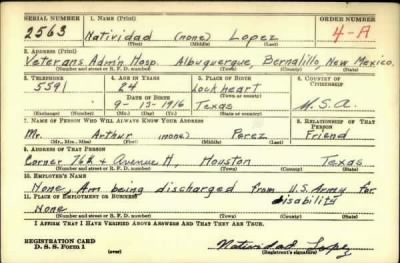 SERIAL NUMBER 1. NAME (Print) ORDER NUMBER
2563 Natividad (none) Lopez 4-A
(First) (Middle) (Last)
2. ADDRESS (Print)
Veterans Adm'n Hosp. Albuquerque, Bernalillo, New Mexico.
(Number and street or R. F. D. number) (Town) (County) (State)
3. TELEPHONE 4. AGE IN YEARS 5. PLACE OF BIRTH 6. COUNTRY OF CITIZENSHIP
5591 24 Lockheart
DATE OF BIRTH (Town or county)
9-13-1916 Texas U.S.A.
(Exchange) (Number) (Mo.) (Day) (Yr.) (State or country)
7. NAME OF PERSON WHO WILL ALWAYS KNOW YOUR ADDRESS 8. RELATIONSHIP OF THAT PERSON
Mr. Arthur (none) Perez Friend
(Mr., Mrs., Miss) (First) (Middle) (Last)
9. ADDRESS OF THAT PERSON
Corner 76th & Avenue H, Houston Texas
(Number and street or R. F. D. number) (Town) (County) (State)
10. EMPLOYER'S NAME
None, Am being discharged from U.S. Army for
11. PLACE OF EMPLOYMENT OR BUSINESS disability
None
(Number and street or R. F. D. number) (Town) (County) (State)
I AFFIRM THAT I HAVE VERIFIED ABOVE ANSWERS AND THAT THEY ARE TRUE.
REGISTRATION CARD
D. S. S. Form 1 (over) Natividad Lopez
(Registrant's signature)